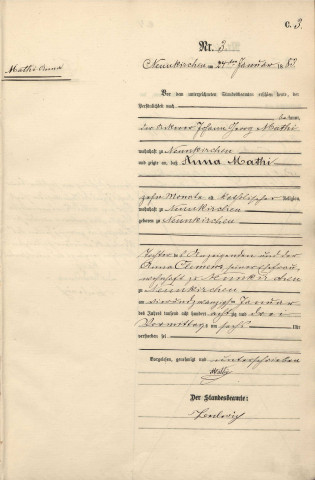 C. 3.
Nr. 3
Mathi Anna
Neunkirchen am 24ten Januar 1883
Vor dem unterzeichneten Standesbeamten erschien heute, der
Persönlichkeit nach
bekannt,
der Ackerer Johann Georg Mathi
wohnhaft zu Neunkirchen
und zeigte an, daß Anna Mathi
zehn Monate alt, katholischer Religion,
wohnhaft zu Neunkirchen
geboren zu Neunkirchen
Tochter des Anzeigenden und der
Anna
zu Neunkirchen
am vierundzwanzigsten Januar
des Jahres tausend acht hundert achtzig und drei
Vormittags um sechs Uhr
verstorben sei.
Vorgelesen, genehmigt und unterschrieben
Der Standesbeamte: